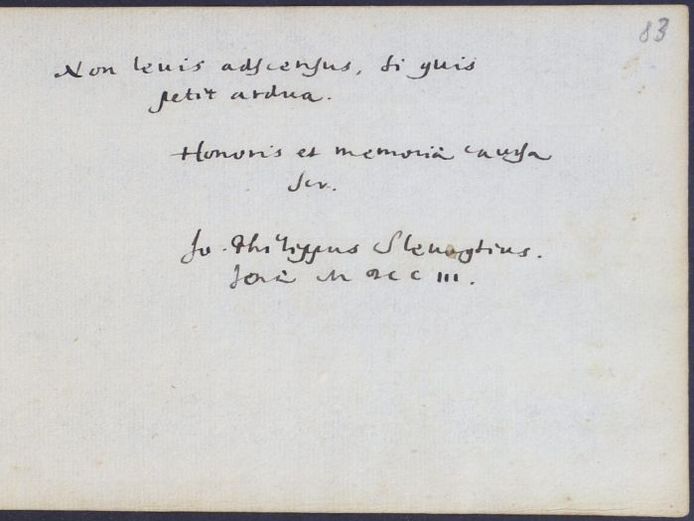 83
Non leuis adscensus, si quis
petit ardua.
Honoris et memoriæ caussa
scr.
Jo. Philippus Slevogtius.
Jenæ MDCCIII.